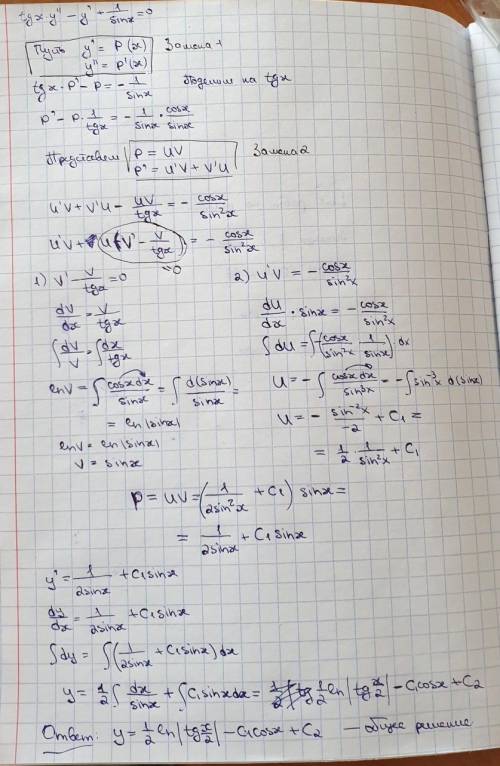 tgx·y'' − y' + 1/sinx = 0
Пусть y' = P(x) Замена 1
y'' = P'(x)
tgx·P' − P = − 1/sinx Поделим на tgx
P' − P·1/tgx = − 1/sinx · cosx/sinx
Представим P = UV Замена 2
P' = U'V + V'U
U'V + V'U − UV/tgx = − cosx/sin²x
U'V + U(V' − V/tgx) = − cosx/sin²x
=0
1) V' − V/tgx = 0
dV/dx = V/tgx
∫dV/V = ∫dx/tgx
lnV = ∫cosxdx/sinx = ∫d(sinx)/sinx =
= ln|sinx|
lnV = ln|sinx|
V = sinx
2) U'V = − cosx/sin²x
dU/dx · sinx = − cosx/sin²x
∫dU = ∫(−cosx/sin²x · 1/sinx)·dx
U = −∫cosxdx/sin³x = −∫sin⁻³x d(sinx)
U = − sin⁻²x/−2 + C₁ =
= 1/2 · 1/sin²x + C₁
P = UV = (1/2sin²x + C₁) sinx =
= 1/2sinx + C₁sinx
y' = 1/2sinx + C₁sinx
dy/dx = 1/2sinx + C₁sinx
∫dy = ∫(1/2sinx + C₁sinx)dx
y = 1/2∫dx/sinx + ∫C₁sinxdx = 1/2 ln|tg x/2| − C₁cosx + C₂
Ответ: y = 1/2 ln|tg x/2| − C₁cosx + C₂ — общее решение